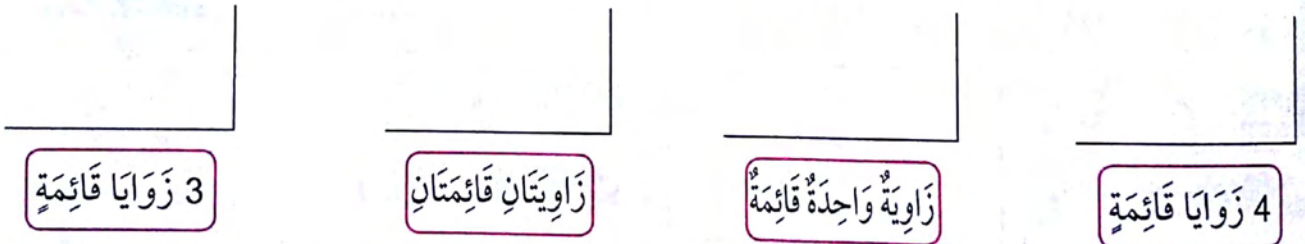 4 زَوَايَا قَائِمَةٍ
زَاوِيَةٌ وَاحِدَةٌ قَائِمَةٌ
زَاوِيَتَانِ قَائِمَتَانِ
3 زَوَايَا قَائِمَةٍ